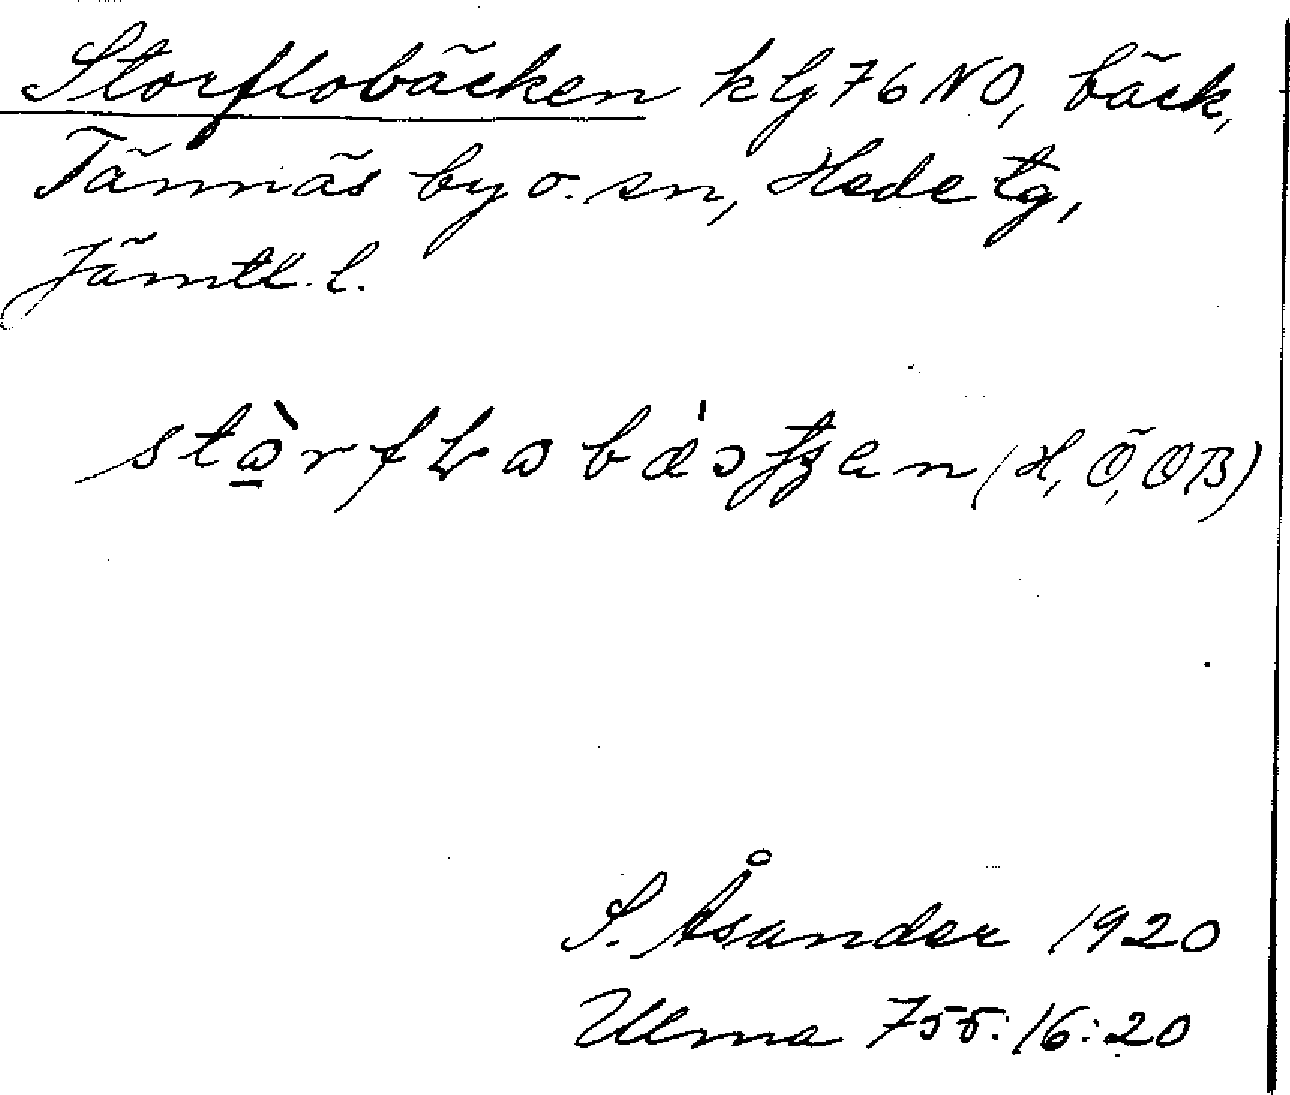 Storflobäcken kG76NO, bäck,
Tännäs by o. sn, Hede tg,
Jämtl. l.
(H, Ö, OB)
S. Åsander 1920
Ulma 755:16:20